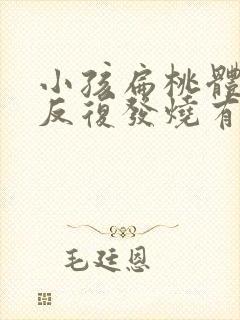 小孩扁桃體
反復發燒有
毛廷恩